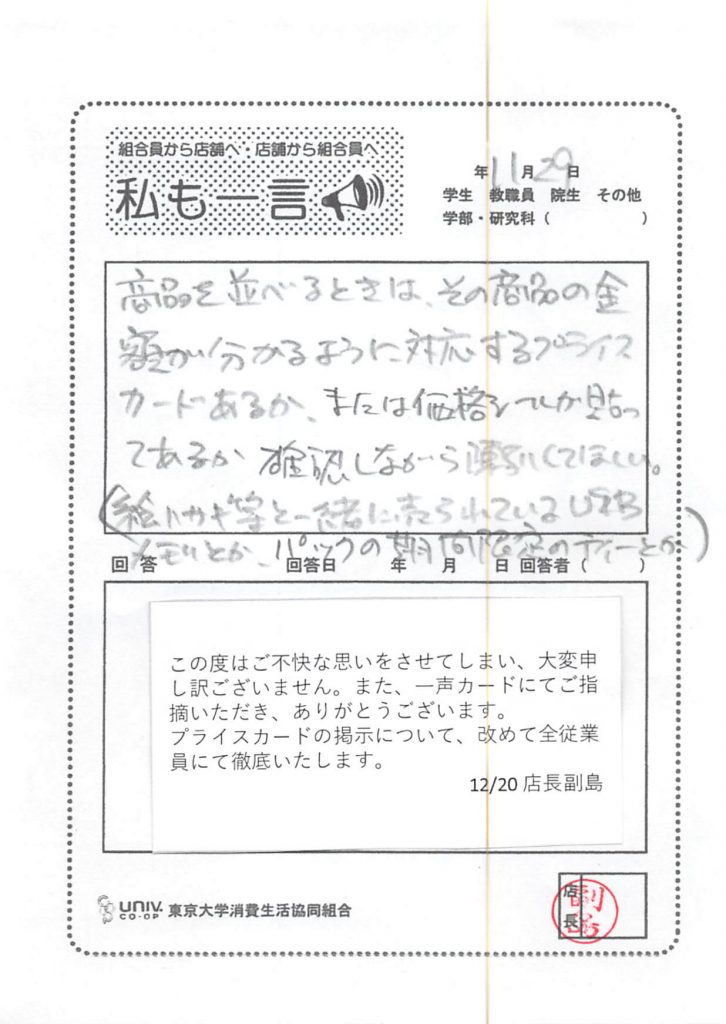 組合員から店舗へ・店舗から組合員へ
私も一言
年 11月 29日
学生 教職員 院生 その他
学部・研究科（　　　）
商品を並べるときは、その商品の金
額が分かるように対応するプライス
カードあるか、または価格シールが貼っ
てあるか確認しながら陳列してほしい。
(絵ハガキ等と一緒に売られているUSB
メモリとか、パックの期間限定のティーとか)
回答 回答日 年 月 日 回答者（　　　）
この度はご不快な思いをさせてしまい、大変申
し訳ございません。また、一声カードにてご指
摘いただき、ありがとうございます。
プライスカードの掲示について、改めて全従業
員にて徹底いたします。
12/20 店長副島
UNIV.
CO-OP
東京大学消費生活協同組合
店長
副島